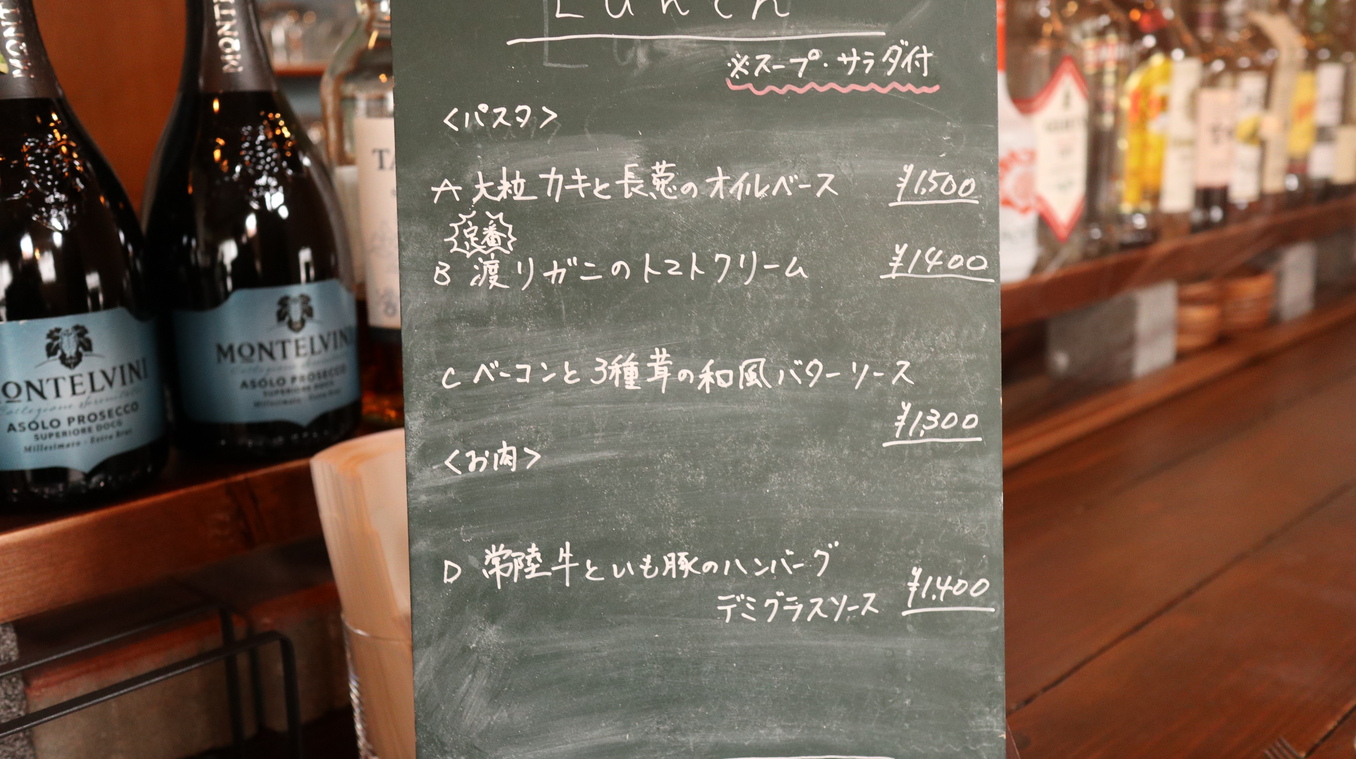 Lunch
※スープ・サラダ付
<パスタ>
A 大粒カキと長葱のオイルベース ¥1,500
定番
B 渡リガニのトマトクリーム ¥1400
C ベーコンと3種茸の和風バターソース
¥1,300
<お肉>
D 常陸牛といも豚のハンバーグ
デミグラスソース ¥1,400
MONTELVINI
ASOLO PROSECCO
SUPERIORE DOCG
Millesimato - Extra Brut
MONTELVINI
ASOLO PROSECCO
SUPERIORE DOCG
Millesimato - Extra Brut